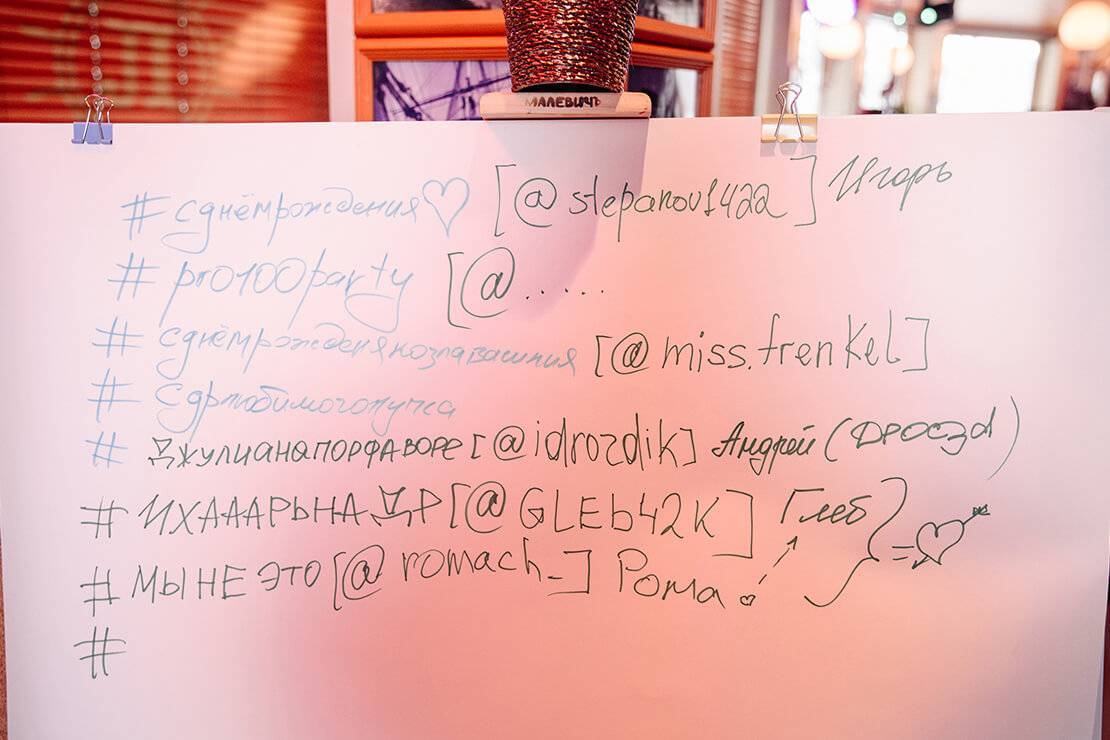 МАЛЕВИЧЪ
#сднёмрождения♡ [@stepanov1422] Игорь
#pro100party [@.....
[@miss.frenkel]
#сдрлюбимогопупса
#ДЖУЛИАНАПОРФАВОРЕ [@idrozdik] Андрей (Дрозд)
#ИХАААРЬНАДР [@GLEb42K] Глеб
#МЫНЕЭТО [@romach_] Рома = ♡
#